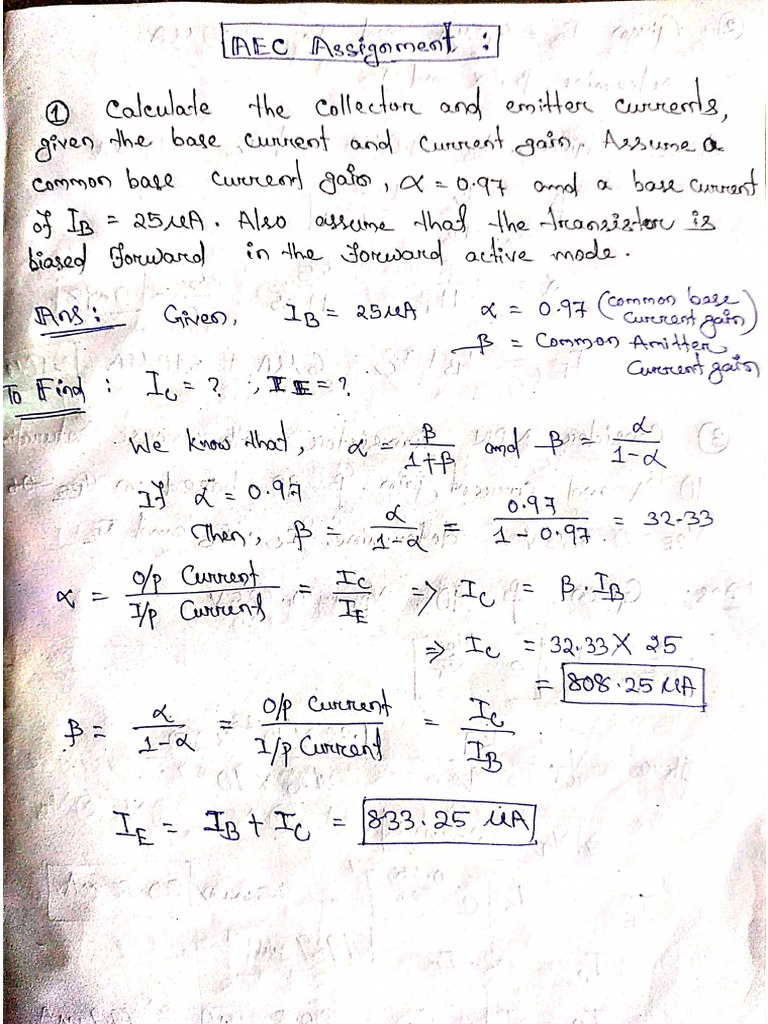 AEC Assignment :
① Calculate the collector and emitter currents,
given the base current and current gain. Assume a
common base current gain, α = 0.97 and a base current
of I_B = 25 μA. Also assume that the transistor is
biased forward in the forward active mode.
Ans : Given, I_B = 25 μA α = 0.97 (common base
current gain)
β = Common Amitter
Current gain
To Find : I_C = ? , I_E = ?
We know that, α = β/(1+β) and β = α/(1-α)
If α = 0.97
Then, β = α/(1-α) = 0.97/(1 - 0.97) = 32.33
α = O/p Current/I/p Current = I_C/I_E ⇒ I_C = β · I_B
⇒ I_C = 32.33 X 25
= 808.25 μA
β = α/(1-α) = O/p Current/I/p Current = I_C/I_B
I_E = I_B + I_C = 833.25 μA